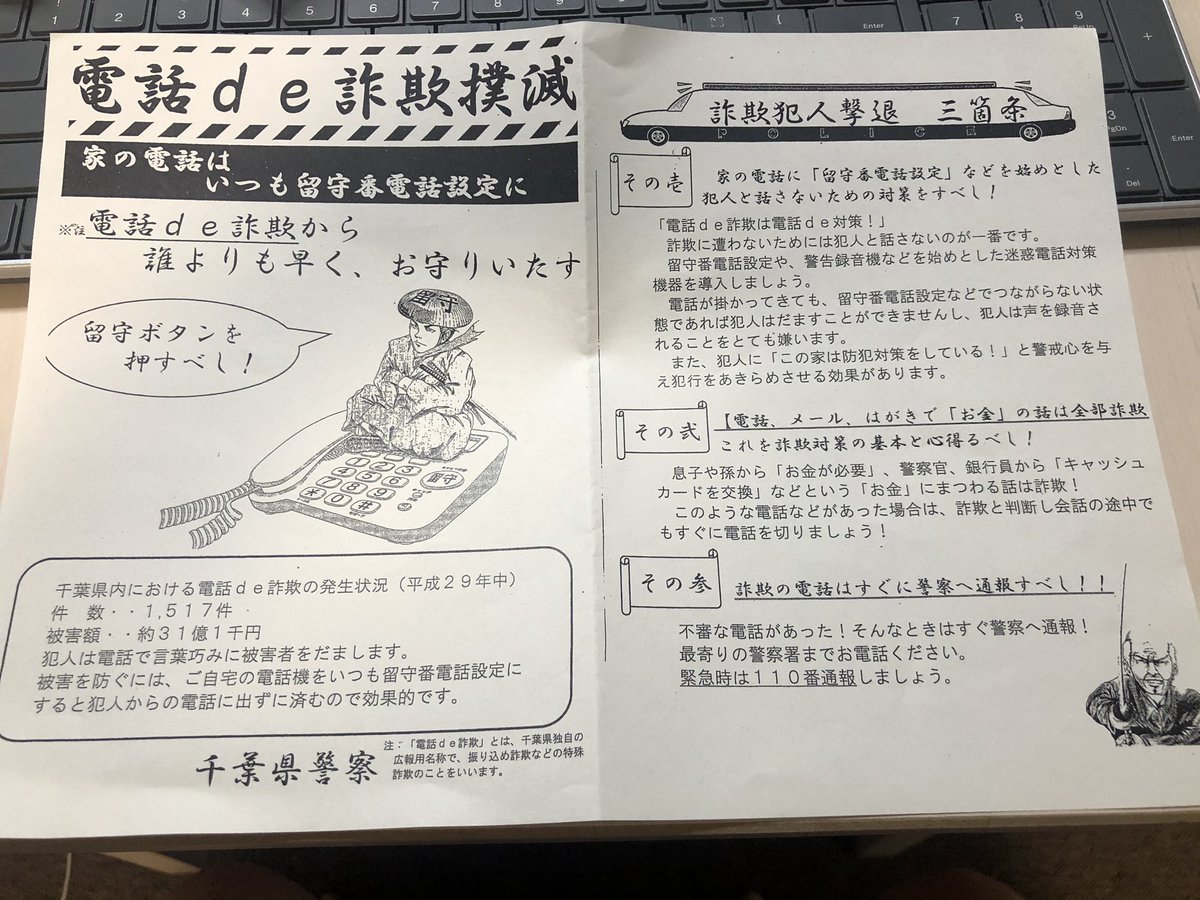 電話ｄｅ詐欺撲滅
家の電話は
いつも留守番電話設定に
※注 電話ｄｅ詐欺から
誰よりも早く、お守りいたす
留守ボタンを
押すべし！
留守
1 2 3
4 5 6
7 8 9
* 0 #
留守
千葉県内における電話ｄｅ詐欺の発生状況（平成２９年中）
件　数・・１,５１７件
被害額・・約３１億１千円
犯人は電話で言葉巧みに被害者をだまします。
被害を防ぐには、ご自宅の電話機をいつも留守番電話設定に
すると犯人からの電話に出ずに済むので効果的です。
千葉県警察
注：「電話ｄｅ詐欺」とは、千葉県独自の
広報用名称で、振り込め詐欺などの特殊
詐欺のことをいいます。
詐欺犯人撃退　三箇条
POLICE
その壱
家の電話に「留守番電話設定」などを始めとした
犯人と話さないための対策をすべし！
「電話ｄｅ詐欺は電話ｄｅ対策！」
詐欺に遭わないためには犯人と話さないのが一番です。
留守番電話設定や、警告録音機などを始めとした迷惑電話対策
機器を導入しましょう。
電話が掛かってきても、留守番電話設定などでつながらない状
態であれば犯人はだますことができませんし、犯人は声を録音さ
れることをとても嫌います。
また、犯人に「この家は防犯対策をしている！」と警戒心を与
え犯行をあきらめさせる効果があります。
その弐
【電話、メール、はがきで「お金」の話は全部詐欺
これを詐欺対策の基本と心得るべし！
息子や孫から「お金が必要」、警察官、銀行員から「キャッシュ
カードを交換」などという「お金」にまつわる話は詐欺！
このような電話などがあった場合は、詐欺と判断し会話の途中で
もすぐに電話を切りましょう！
その参
詐欺の電話はすぐに警察へ通報すべし！！
不審な電話があった！そんなときはすぐ警察へ通報！
最寄りの警察署までお電話ください。
緊急時は１１０番通報しましょう。